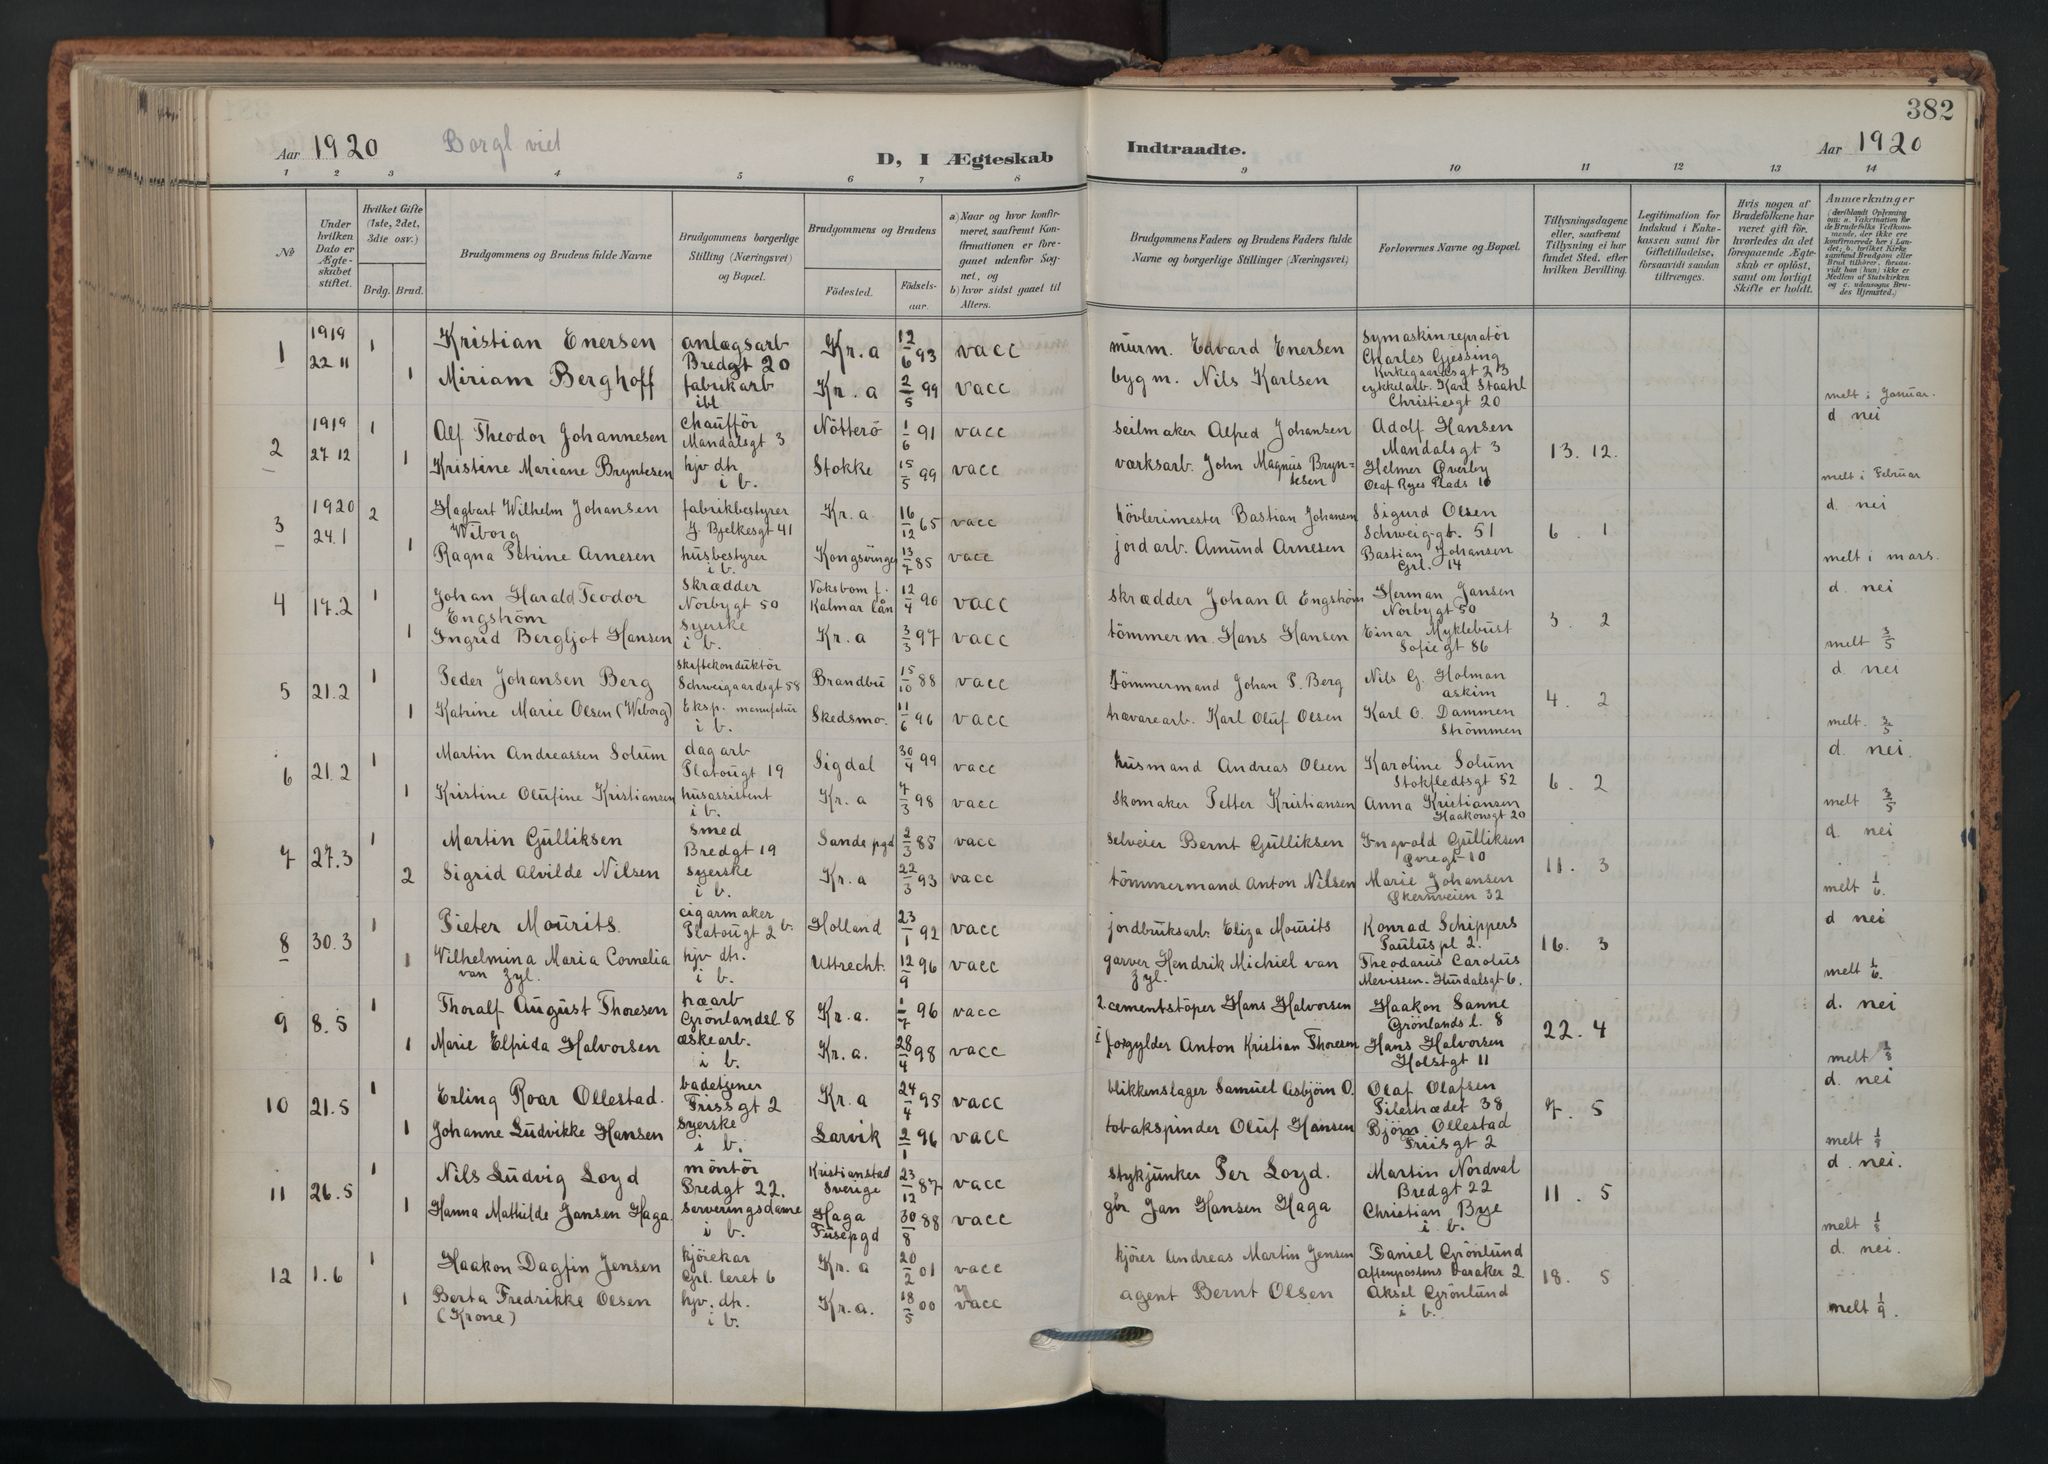 382
Aar 1920
Borgl viet
D, I Ægteskab
Indtraadte.
Aar 1920
1 2 3 4 5 6 7 8 9 10 11 12 13 14
No
Under hvilken Dato er Ægteskabet stiftet.
Hvilket Gifte (1ste, 2det, 3die osv.)
Brdg. Brud.
Brudgommens og Brudens fulde Navne
Brudgommens borgerlige Stilling (Næringsvei) og Bopæl.
Brudgommens og Brudens
Fødested.
Fødselsaar.
a) Naar og hvor konfirmeret, saafremt Konfirmationen er foregaaet udenfor Sognet, og
b) hvor sidst gaaet til Alters.
Brudgommens Faders og Brudens Faders fulde Navne og borgerlige Stillinger (Næringsvei)
Forlovernes Navne og Bopæl.
Tillysningsdagene eller, saafremt Tillysning ei har fundet Sted, efter hvilken Bevilling.
Legitimation for Indskud i Enkekassen samt for Giftetilladelse, forsaavidt saadan tiltrænges.
Hvis nogen af Brudefolkene har været gift før, hvorledes da det foregaaende Ægteskab er opløst, samt om lovligt Skifte er holdt.
Anmærkninger
1 1919 22 11 1 Kristian Enersen anlægsarb Bredgt 20 Kr.a 12/6 93 vacc murm. Edvard Enersen Symaskinrepratör Charles Gjessing Kirkegaardsgt 23
1 Miriam Berghoff fabrikarb ibl Kr.a 2/5 99 vacc bygm. Nils Karlsen cykkelarb. Karl Staahl Christiesgt 20 melt i Januar.
2 1919 27 12 1 Alf Theodor Johannesen Chaufför Mandalsgt 3 Nötterö 1/6 91 vacc seilmaker Alfred Johansen Adolf Hansen Mandalsgt 3 13. 12. d. nei
1 Kristine Mariane Bryntesen hjv dtr i b. Stokke 15/5 99 vacc værksarb. John Magnus Bryntesen Helmer Överby Olaf Ryes Plads 10 melt i Februar
3 1920 24.1 2 Hagbart Wilhelm Johansen Wiborg fabrikbestyrer J Bjelkesgt 41 Kr.a 16/12 65 vacc hövlerimester Bastian Johansen Sigurd Olsen Schweig-gt. 51 6. 1 d. nei
1 Ragna Petrine Arnesen husbestyrer i b. Kongsvinger 13/7 85 vacc jordarb. Amund Arnesen Bastian Johansen Grl. 14 melt i mars.
4 17.2 1 Johan Harald Teodor Engström skrædder Norbygt 50 Voksbom f. Kalmar Län 12/4 90 vacc skrædder Johan A Engström Herman Jansen Norbygt 50 3. 2 d. nei
1 Ingrid Bergljot Hansen syerske i b. Kr.a 3/3 97 vacc tömmerm. Hans Hansen Einar Myklebust Sofiegt 86 melt 3/5
5 21.2 1 Peder Johansen Berg skiftekonduktör Schweigaardsgt 58 Brandbu 15/10 88 vacc tömmermand Johan P. Berg Nils G. Holman askim 4. 2 d. nei
1 Katrine Marie Olsen (Wiborg) Eksp. manufatur i b. Skedsmo. 11/6 96 vacc trævarearb. Karl Oluf Olsen Karl O. Dammen Strömmen melt. 3/5
6 21.2 1 Martin Andreassen Solum dagarb Platougt 19 Sigdal 30/4 99 vacc husmand Andreas Olsen Karoline Solum Stokfledtsgt 52 6. 2 d. nei.
1 Kristine Olufine Kristiansen husassistent i b. Kr.a 7/3 98 vacc skomaker Petter Kristiansen Anna Kristiansen Haakonsgt 20 melt 3/5
7 27.3 1 Martin Gulliksen smed Bredgt 19 Sande pgd 2/3 85 vacc selveier Bernt Gulliksen Ingvold Gulliksen Övregt 10 11. 3 d. nei
2 Sigrid Alvilde Nilsen syerske i b. Kr.a 22/3 93 vacc tömmermand Anton Nilsen Marie Johansen Ekernveien 32 melt 1/6.
8 30.3 1 Pieter Mourits. cigarmaker Platougt 2 b. Holland 23/1 92 vacc jordbruksarb. Eliza Mourits Konrad Schippers Pauluspl 2. 16. 3 d nei
1 Wilhelmina Maria Cornelia van Zyl. hjv dtr. i b. Uttrecht. 12/9 96 vacc garver Hendrik Michiel van Zyl. Theodarus Carolus Mevissen. Hurdalsgt 6. melt 1/6.
9 8.5 1 Thoralf August Thoresen træarb Grönlandsl. 8 Kr.a. 1/7 96 vacc 2. cementstöper Hans Halvorsen Haakon Sanne Grönlands l. 8 22. 4 d. nei
1 Marie Elfrida Halvorsen æskearb. i b. Kr.a. 28/4 98 vacc 1 forgylder Anton Kristian Thoresen Hans Halvorsen Holstgt 11 melt 1/8
10 21.5 1 Erling Roar Ollestad. badetjener Friisgt 2 Kr.a 24/4 95 vacc blikkenslager Samuel Asbjörn O. Olaf Olafsen Pilestrædet 38 7. 5 d. nei
1 Johanne Ludvikke Hansen syerske i b. Larvik 2/1 96 vacc tobakspinder Oluf Hansen Björn Ollestad Friisgt 2 melt 1/8
11 26.5 1 Nils Ludvig Loyd möntör Bredgt 22. Kristianstad Sverige 23/12 87 vacc stykjunker Per Loyd. Martin Nordval Bredgt 22 11. 5 d. nei.
1 Hanna Mathilde Jansen Haga. serveringsdame i b. Haga Fusepgd 30/8 88 vacc gbr Jan Hansen Haga Christian Bye i b. melt 1/8
12 1.6 1 Haakon Dagfin Jensen kjörekar Grl. leret 6 Kr.a 20/2 01 vacc kjörer Andreas Martin Jensen Daniel Grönlund Aftenpostens baraker 2. 18. 5 d. nei.
1 Berta Fredrikke Olsen (Krone) hjv. dtr. i b. Kr.a. 18/5 00 vacc agent Bernt Olsen Aksel Grönlund i b. melt 1/9.